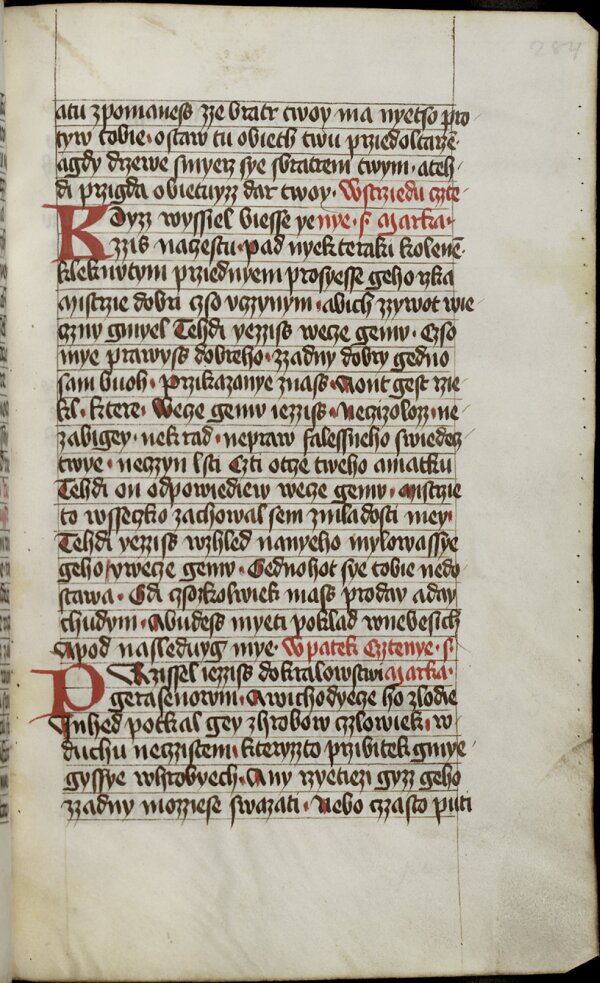 284
atu zpomaness zze bratr twoy ma nyetso pro
tyw tobie · ostaw tu obiech twu przied oltarzē ·
agdy drzewe smyerz sye sbratrem twym · ateh
di przigda obietuyzz dar twoy · Wstrziedu czte
Kdyzz wyssiel biesse ye nye · s · Marka ·
zzis naczestu · pad nyekteraku kolenē ·
kleknutym prziednyem prosyesse geho rzka
Mistrzie dobri czso vczynym · abich zzywot wie
czny gmyel Tehdi yezziss wecze gemv · Czso
mye prawyss dobreho · zzadny dobry gedno
sam buoh · Przikazanye znass · Aont gest rzie
kl · ktere · Wecze gemv iezziss · Neczizolozz · ne
zabigey · nekrad · nepraw falessneho swiedecz
twye · neczyn lsti Czti otcze tweho amatku
Tehdi on odpowiediew wecze gemv · Mistrzie
to wsseczko zachowal sem zmladosti mey ·
Tehdi yezziss wzhled nanyeho mylowassye
geho / vwecze gemv · Gednohot sye tobie nedo
stawa · Gdi czsozkolwiek mass proday aday
chudym · Abudess myeti poklad wnebesich
Apod nasleduyg mye · Wpatek Cztenye · s ·
Przissel iezziss dokralowstwi Marka ·
gerasenorum · Awichodyecze ho zlodie
Inhed potkal gey zhrobow czlowiek · w
duchu neczistem · kteryzzto przibitek gmye
gyssye whrobyech · Any rzyetiezi gyzz geho
zzadny mozziese swazati · Nebo czzasto puti